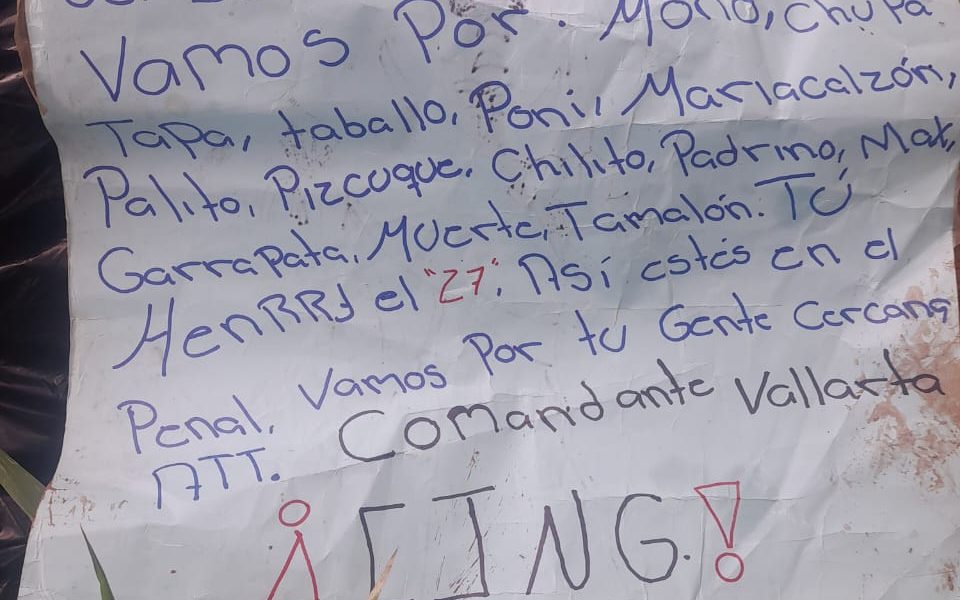 Vamos Por. Mono, chupa
Tapa, taballo, Poni, Mariacalzón,
Palito, Pizcuque. Chilito, Padrino, Max,
Garrapata, Muerte, Tamalón. TÚ
HenRRy el "27". Así estés en el
Penal. Vamos Por tu Gente Cercana
ATT. Comandante Vallarta
¡CJNG.!